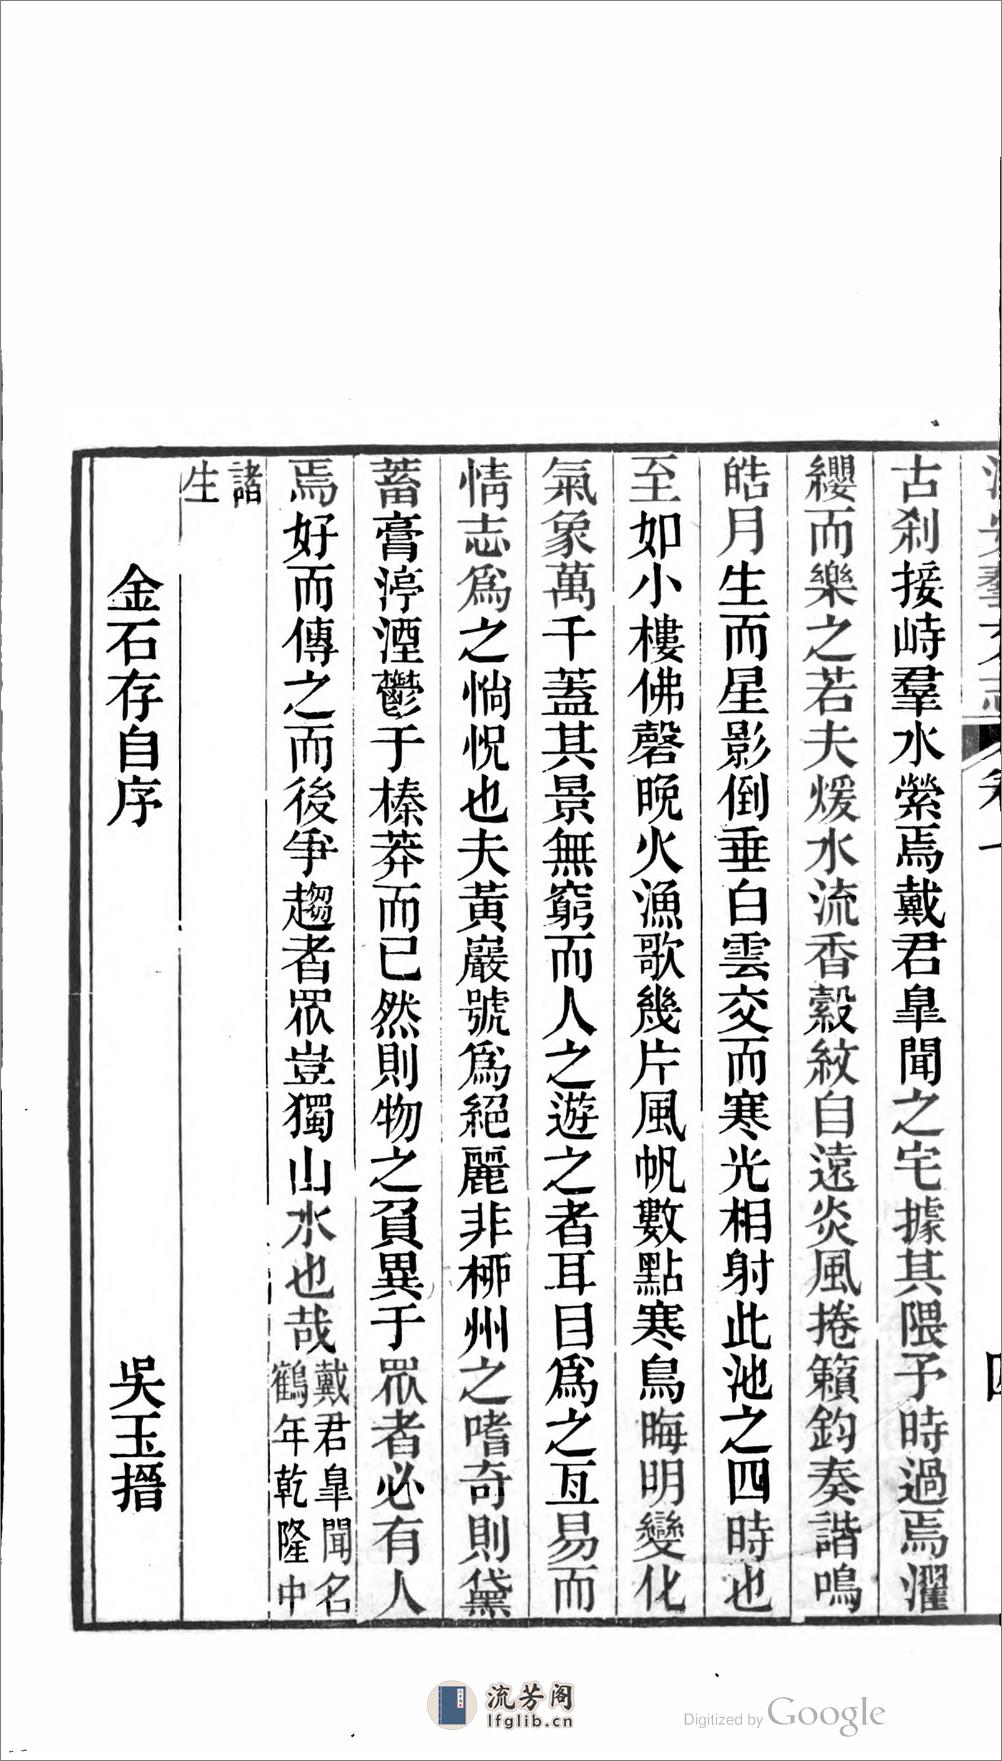 古刹接峙羣水縈焉戴君臯聞之宅據其隈予時過焉濯
纓而樂之若夫煖水流香縠紋自遠炎風捲籟鈞奏諧鳴
皓月生而星影倒垂白雲交而寒光相射此池之四時也
至如小樓佛磬晚火漁歌幾片風帆數點寒鳥晦明變化
氣象萬千蓋其景無窮而人之遊之者耳目爲之亙易而
情志爲之惝怳也夫黃巖號爲絕麗非桺州之嗜奇則黛
蓄膏渟湮鬱于榛莽而已然則物之負異于眾者必有人
焉好而傳之而後争趨者眾豈獨山水也哉戴君臯聞名
鶴年乾隆中
諸
生
金石存自序 吳玉搢
流芳阁
lfglib.cn
Digitized by Google